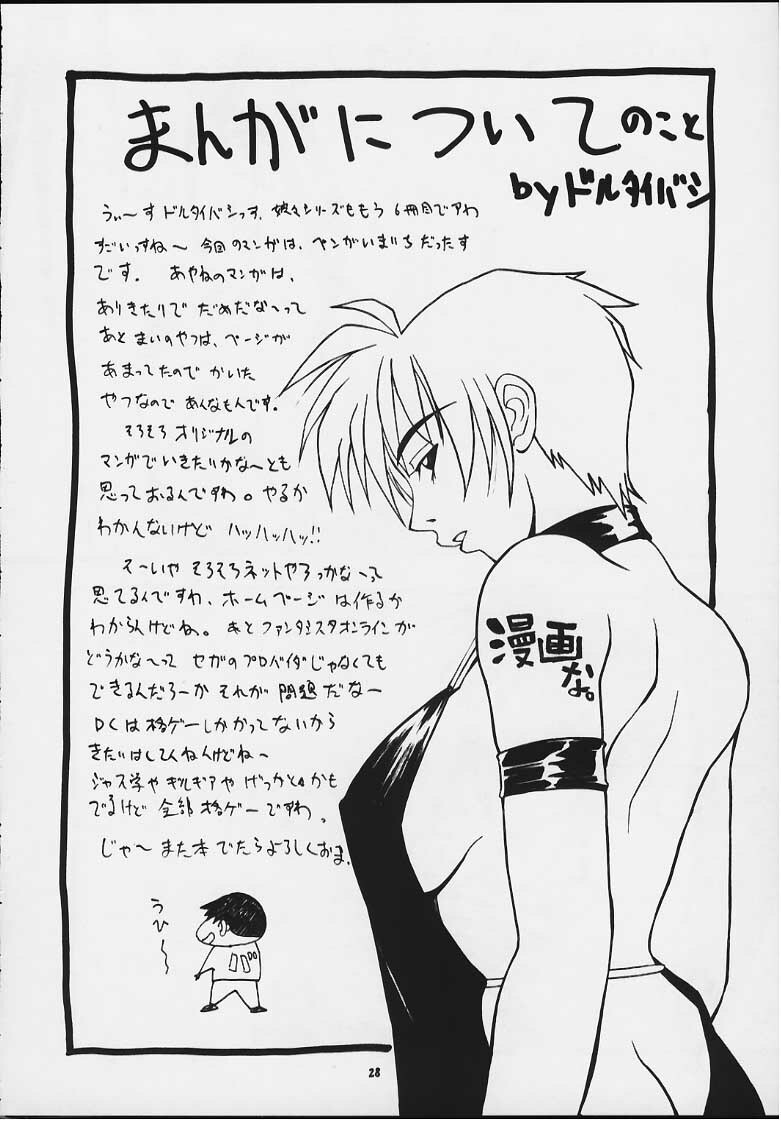 まんがについてのこと
byドルタイバシ
うぃ〜す ドルタイバシっす。娘々シリーズももう 6冊目でアわ
すごいっすね〜 今回のマンガは、ペンがいまいちだったす
です。 あやねのマンガは、
ありきたりで だめだな〜って
あと まいのやつは、ページが
あまってたので かいた
やつなので あんなもんです。
そろそろ オリジナルの
マンガでいきたいかな〜とも
思っておるんですわ。やるか
わかんないけど ハッハッハッ!!
そ〜いや そろそろネットやろっかな〜って
思てるんですわ、ホームページは作るか
わからんけどね。あと ファンタシスタオンラインが
どうかな〜って セガのプロバイダじゃなくても
できるんだろーか それが 問題だなー
DCは格ゲーしかかってないから
きたいはしてんねんけどね〜
ジャス学や ギルギアや げっかとかも
でるけど 全部 格ゲーですわ。
じゃ〜 また本 でたらよろしくおま。
漫画
な。
うひ〜〜
28